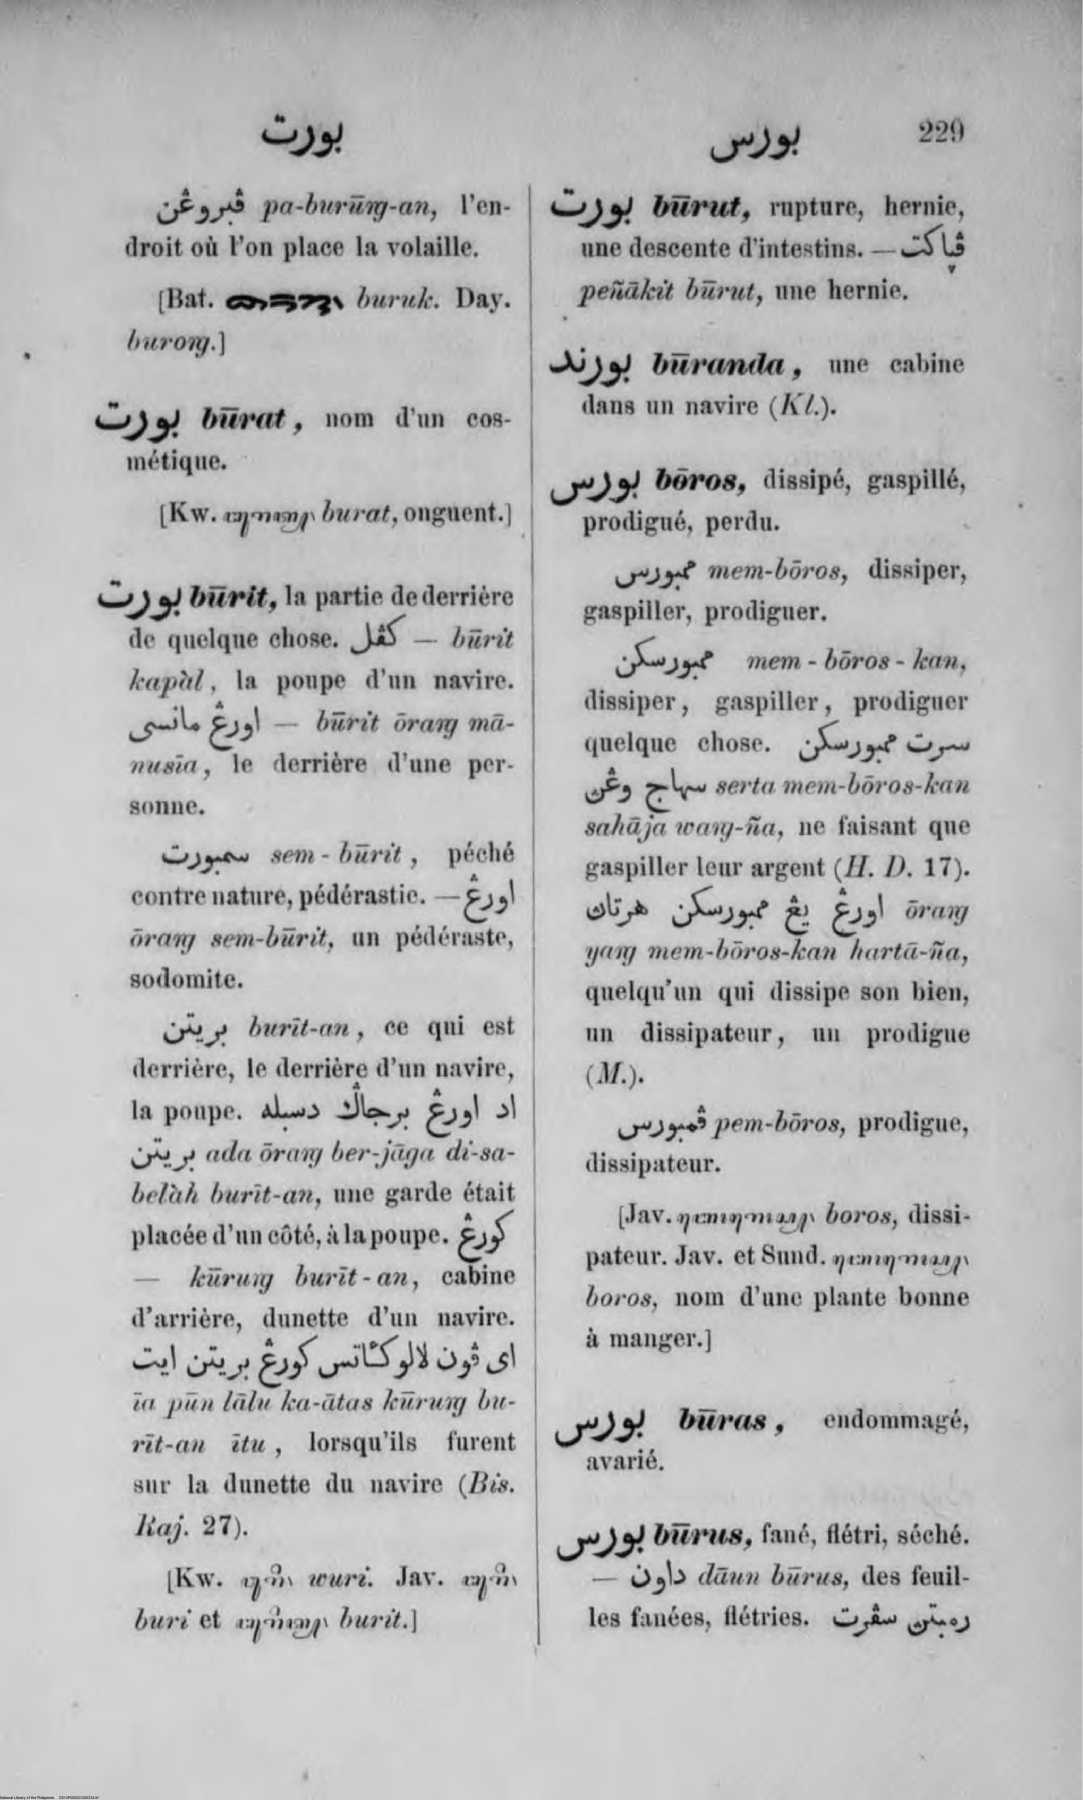 بورت
بورس
229
ڤبروڠن pa-burūŋ-an, l'en-
droit où l'on place la volaille.
[Bat. buruk. Day.
buroŋ.]
بورت būrat, nom d'un cos-
métique.
[Kw. burat, onguent.]
بورت būrit, la partie de derrière
de quelque chose. کڤل — būrit
kapàl, la poupe d'un navire.
اورڠ مانسى — būrit ōraŋ mā-
nusīa, le derrière d'une per-
sonne.
سمبورت sem-būrit, péché
contre nature, pédérastie. — اورڠ
ōraŋ sem-būrit, un pédéraste,
sodomite.
بريتن burīt-an, ce qui est
derrière, le derrière d'un navire,
la poupe. اد اورڠ برجاݢ دسبله
بريتن ada ōraŋ ber-jāga di-sa-
belàh burīt-an, une garde était
placée d'un côté, à la poupe. کورڠ
— kūruŋ burīt-an, cabine
d'arrière, dunette d'un navire.
اى ڤون لالو کئاتس کورڠ بريتن ايت
īa pūn lālu ka-ātas kūruŋ bu-
rīt-an ītu, lorsqu'ils furent
sur la dunette du navire (Bis.
Raj. 27).
[Kw. wuri. Jav.
buri et burit.]
بورت būrut, rupture, hernie,
une descente d'intestins. — ڤياکت
peñākit būrut, une hernie.
بورند būranda, une cabine
dans un navire (Kl.).
بورس bōros, dissipé, gaspillé,
prodigué, perdu.
ممبورس mem-bōros, dissiper,
gaspiller, prodiguer.
ممبورسکن mem-bōros-kan,
dissiper, gaspiller, prodiguer
quelque chose. سرت ممبورسکن
سهاج وڠن serta mem-bōros-kan
sahāja waŋ-ña, ne faisant que
gaspiller leur argent (H. D. 17).
اورڠ يڠ ممبورسکن هرتاڽ ōraŋ
yaŋ mem-bōros-kan hartā-ña,
quelqu'un qui dissipe son bien,
un dissipateur, un prodigue
(M.).
ڤمبورس pem-bōros, prodigue,
dissipateur.
[Jav. boros, dissi-
pateur. Jav. et Sund.
boros, nom d'une plante bonne
à manger.]
بورس būras, endommagé,
avarié.
بورس būrus, fané, flétri, séché.
— داون dāun būrus, des feuil-
les fanées, flétries. رمبتن سڤرت